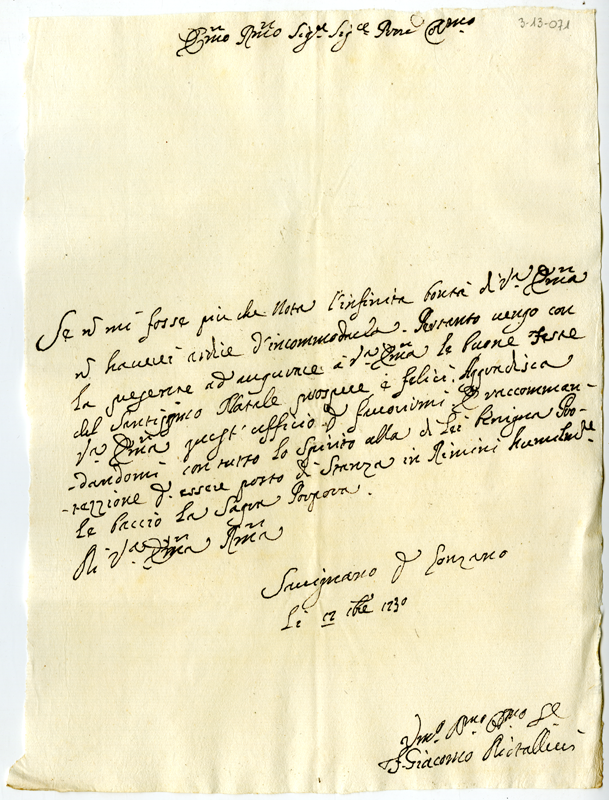 3-13-071
Em̃o Rm̃o Sig.r Sig.r Pñe Col.mo
Se ñ mi fosse più che nota l'infinita bontà di V.a Em̃a
ñ haverei ardire d'incommodarla. Pertanto vengo con
la presente ad augurare à V.a Em̃a le buone Feste
del Santissimo Natale prospere è felici. Aggradisca
V.a Em̃a quest'ufficio di raccomman-
-dandomi con tutto lo Spirito alla di Lei benigna Pro-
-tezzione d'essere posto di Stanza in Rimini humilm.te
le baccio la Sagra Porpora.
Di V.a Em̃a Rm̃a
Savignano di
Li 12 Xbre 1730
Um̃o
F. Giacomo